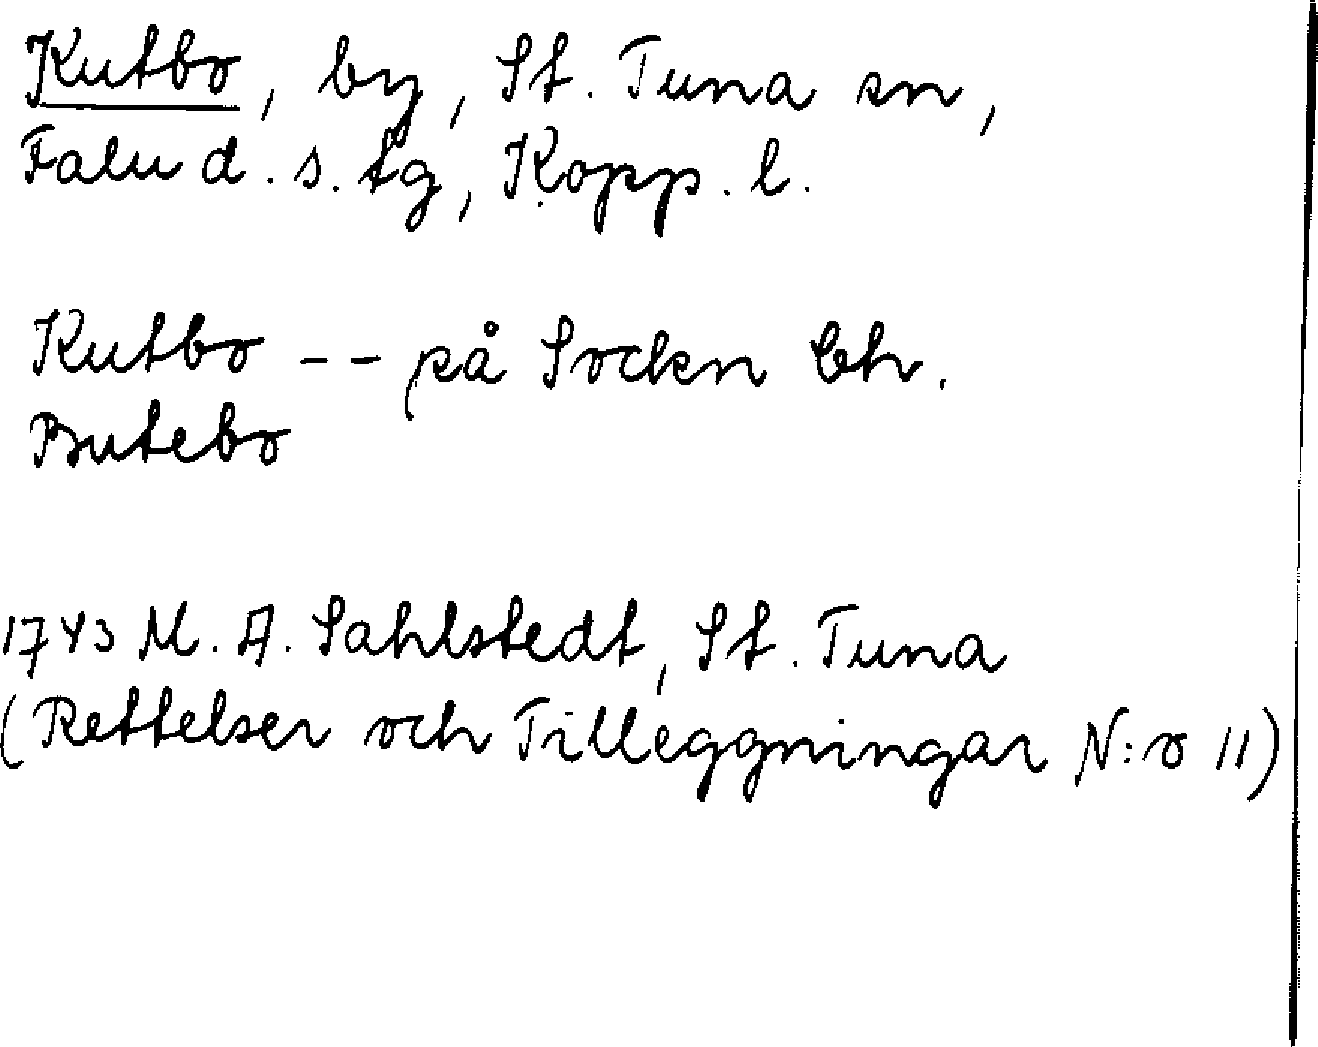 Kutbo, by, St. Tuna sn,
Falu d. s. tg, Kopp. l.
Kutbo -- på Sockn Ch.
Butebo
1743 M. A. Sahlstedt, St. Tuna
(Rettelser och Tilleggningar N:o 11)